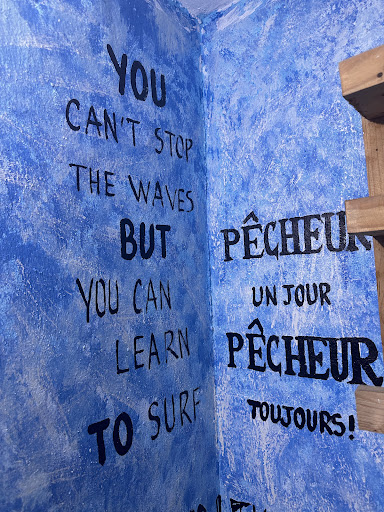 YOU
CAN'T STOP
THE WAVES
BUT
YOU CAN
LEARN
TO SURF
PÊCHEUR
UN JOUR
PÊCHEUR
TOUJOURS!